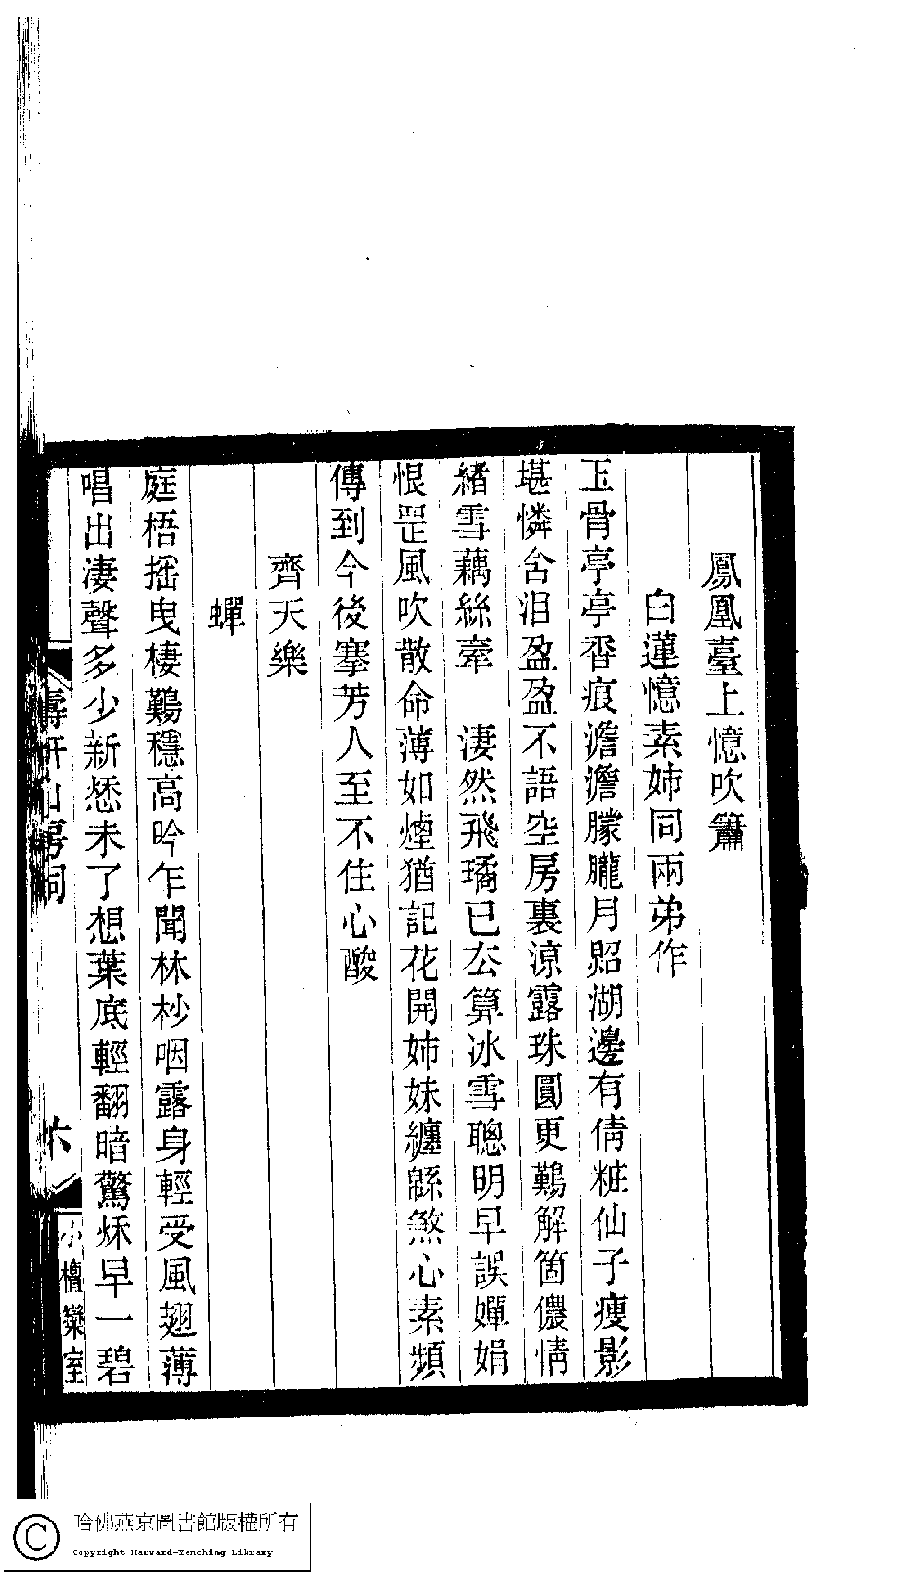 鳳凰臺上憶吹簫
白蓮憶素姉同兩弟作
玉骨亭亭香痕澹澹朦朧月照湖邊有倩粧仙子瘦影
堪憐含泪盈盈不語空房裏涼露珠圓更難解箇儂情
緒雪藕絲牽　淒然飛璚已去算冰雪聰明早誤嬋娟
恨罡風吹散命薄如煙猶記花開姉妹纏緜煞心素頻
傳到今後搴芳人至不住心酸
齊天樂
蟬
庭梧搖曳棲難穩高吟乍聞林杪咽露身輕受風翅薄
唱出淒聲多少新愁未了想葉底輕翻暗驚秋早一碧
壽研山房詞
六
小檀欒室
哈佛燕京圖書館版權所有
Copyright Harvard-Yenching Library